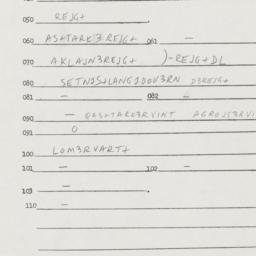 050 REJG+
060 ASHTARK3REJG+ 061 —
070 AKLAJN3REJG+ )-REJG+DL
080 SETNIS+LANGIDOV3RN D3REJG+
081 — 082 —
090 — OASHTARK3RVINT AGROJS3RVI
091 O
100 LOM3RVART+
101 — 102 —
103 —
110 —